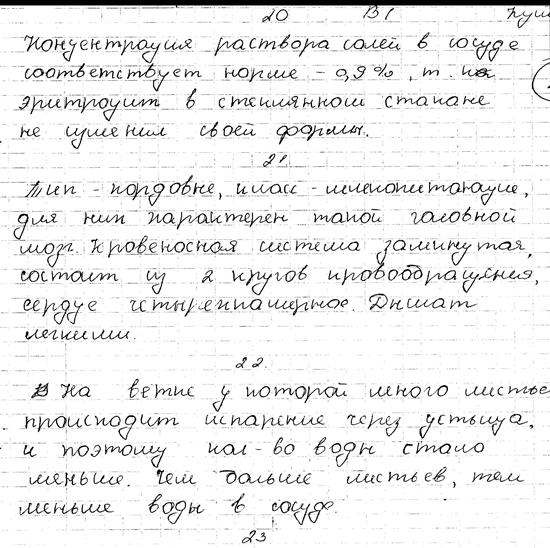 20 В1
Концентрация раствора солей в сосуде
соответствует норме - 0,9%, т. к
эритроцит в стеклянном стакане
не изменил своей формы.
21.
Тип - хордовые, класс - млекопитающие,
для них характерен такой головной
мозг. Кровеносная система замкнутая,
состоит из 2 кругов кровообращения,
сердце четырехкамерное. Дышат
легкими.
22.
На ветке у которой много листье
происходит испарение через устьица,
и поэтому кол-во воды стало
меньше. Чем больше листьев, тем
меньше воды в сосуде.
23